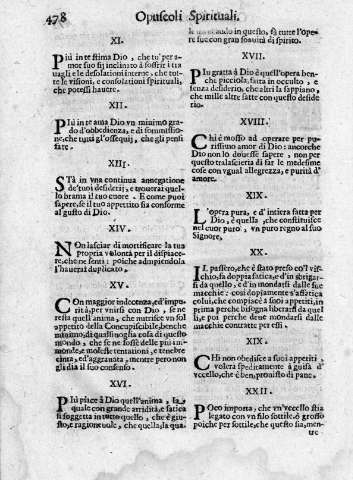 478
Opuscoli Spirituali.
XI.
PIù in te stima Dio, che tu per a-
mor suo sij inclinato à soffrir i tra
uagli e le desolationi interne, che tut-
te le visioni, e consolationi spirituali,
che potessi hauere.
XII.
PIù in te ama Dio vn minimo gra-
do d'obbedienza, e di sommissio-
ne, che tutti gl'ossequij, che gli pensi
fare.
XIII.
STà in vna continua annegatione
de'tuoi desiderij, e trouerai quel-
lo brama il tuo cuore. E come puoi
sapere, se il tuo appetito sia conforme
al gusto di Dio.
XIV.
NOn lasciar di mortificare la tua
propria volontà per il dispiace-
re, che ne senti: poiche adempiendola
l'hauerai duplicato.
XV.
COn maggior indecenza, ed'impu-
rità, per vnirsi con Dio, se ne
resta quell'anima, che nutrisce vn sol
appetito della Concupiscibile, benche
minimo, di qualsiuoglia cosa di questo
mondo, che se ne fosse delle più im-
monde, e moleste tentationi, e tenebre
cinta, ed'aggrauata, mentre però non
gli dia il suo consenso.
XVI.
PIù piace à Dio quell'anima, la
quale con grande arridità, e fatica
si soggetta in tutto quello, che è giu-
sto, e ragioneuole, che quella, la qua
le mancando in questo, fà tutte l'ope-
re sue con gran soauità di spirito.
XVII.
PIù gratta à Dio è quell'opera ben-
che picciola, fatta in occulto, e
senza desiderio, che altri la sappiano,
che mille altre fatte con questo deside
rio.
XVIII.
CHi è mosso ad operare per pu-
rissimo amor di Dio: ancorche
Dio non lo douesse sapere, non per
questo tralasciera di far le medesime
cose con vgual allegrezza, e purità d'
amore.
XIX.
L'Opera pura, e d'intiera fatta per
Dio, è quella, che constituisce
nel cuor puro, vn puro regno al suo
Signore.
XX.
IL passero, che è stato preso col'vi-
schio, fà doppia fatica, e d'in sbrigar-
si da quello, e d'in mondarsi dalle sue
macchie: così dopiamente s'affatica
colui, che compisce à suoi appetiti, in
prima perche bisogna librarsi da quel
li, e poi perche deue mondarsi dalle
macchie contratte per essi.
XIX.
CHi non obedisce a suoi appetiti,
volerà speditamente à guisa d'
vccello, che è ben, prouisto di pane.
XXII.
POco importa, che vn'vccello stia
legato con vn filo sottile, ò grosso
poiche per sottile, che questo sia, men-
tre